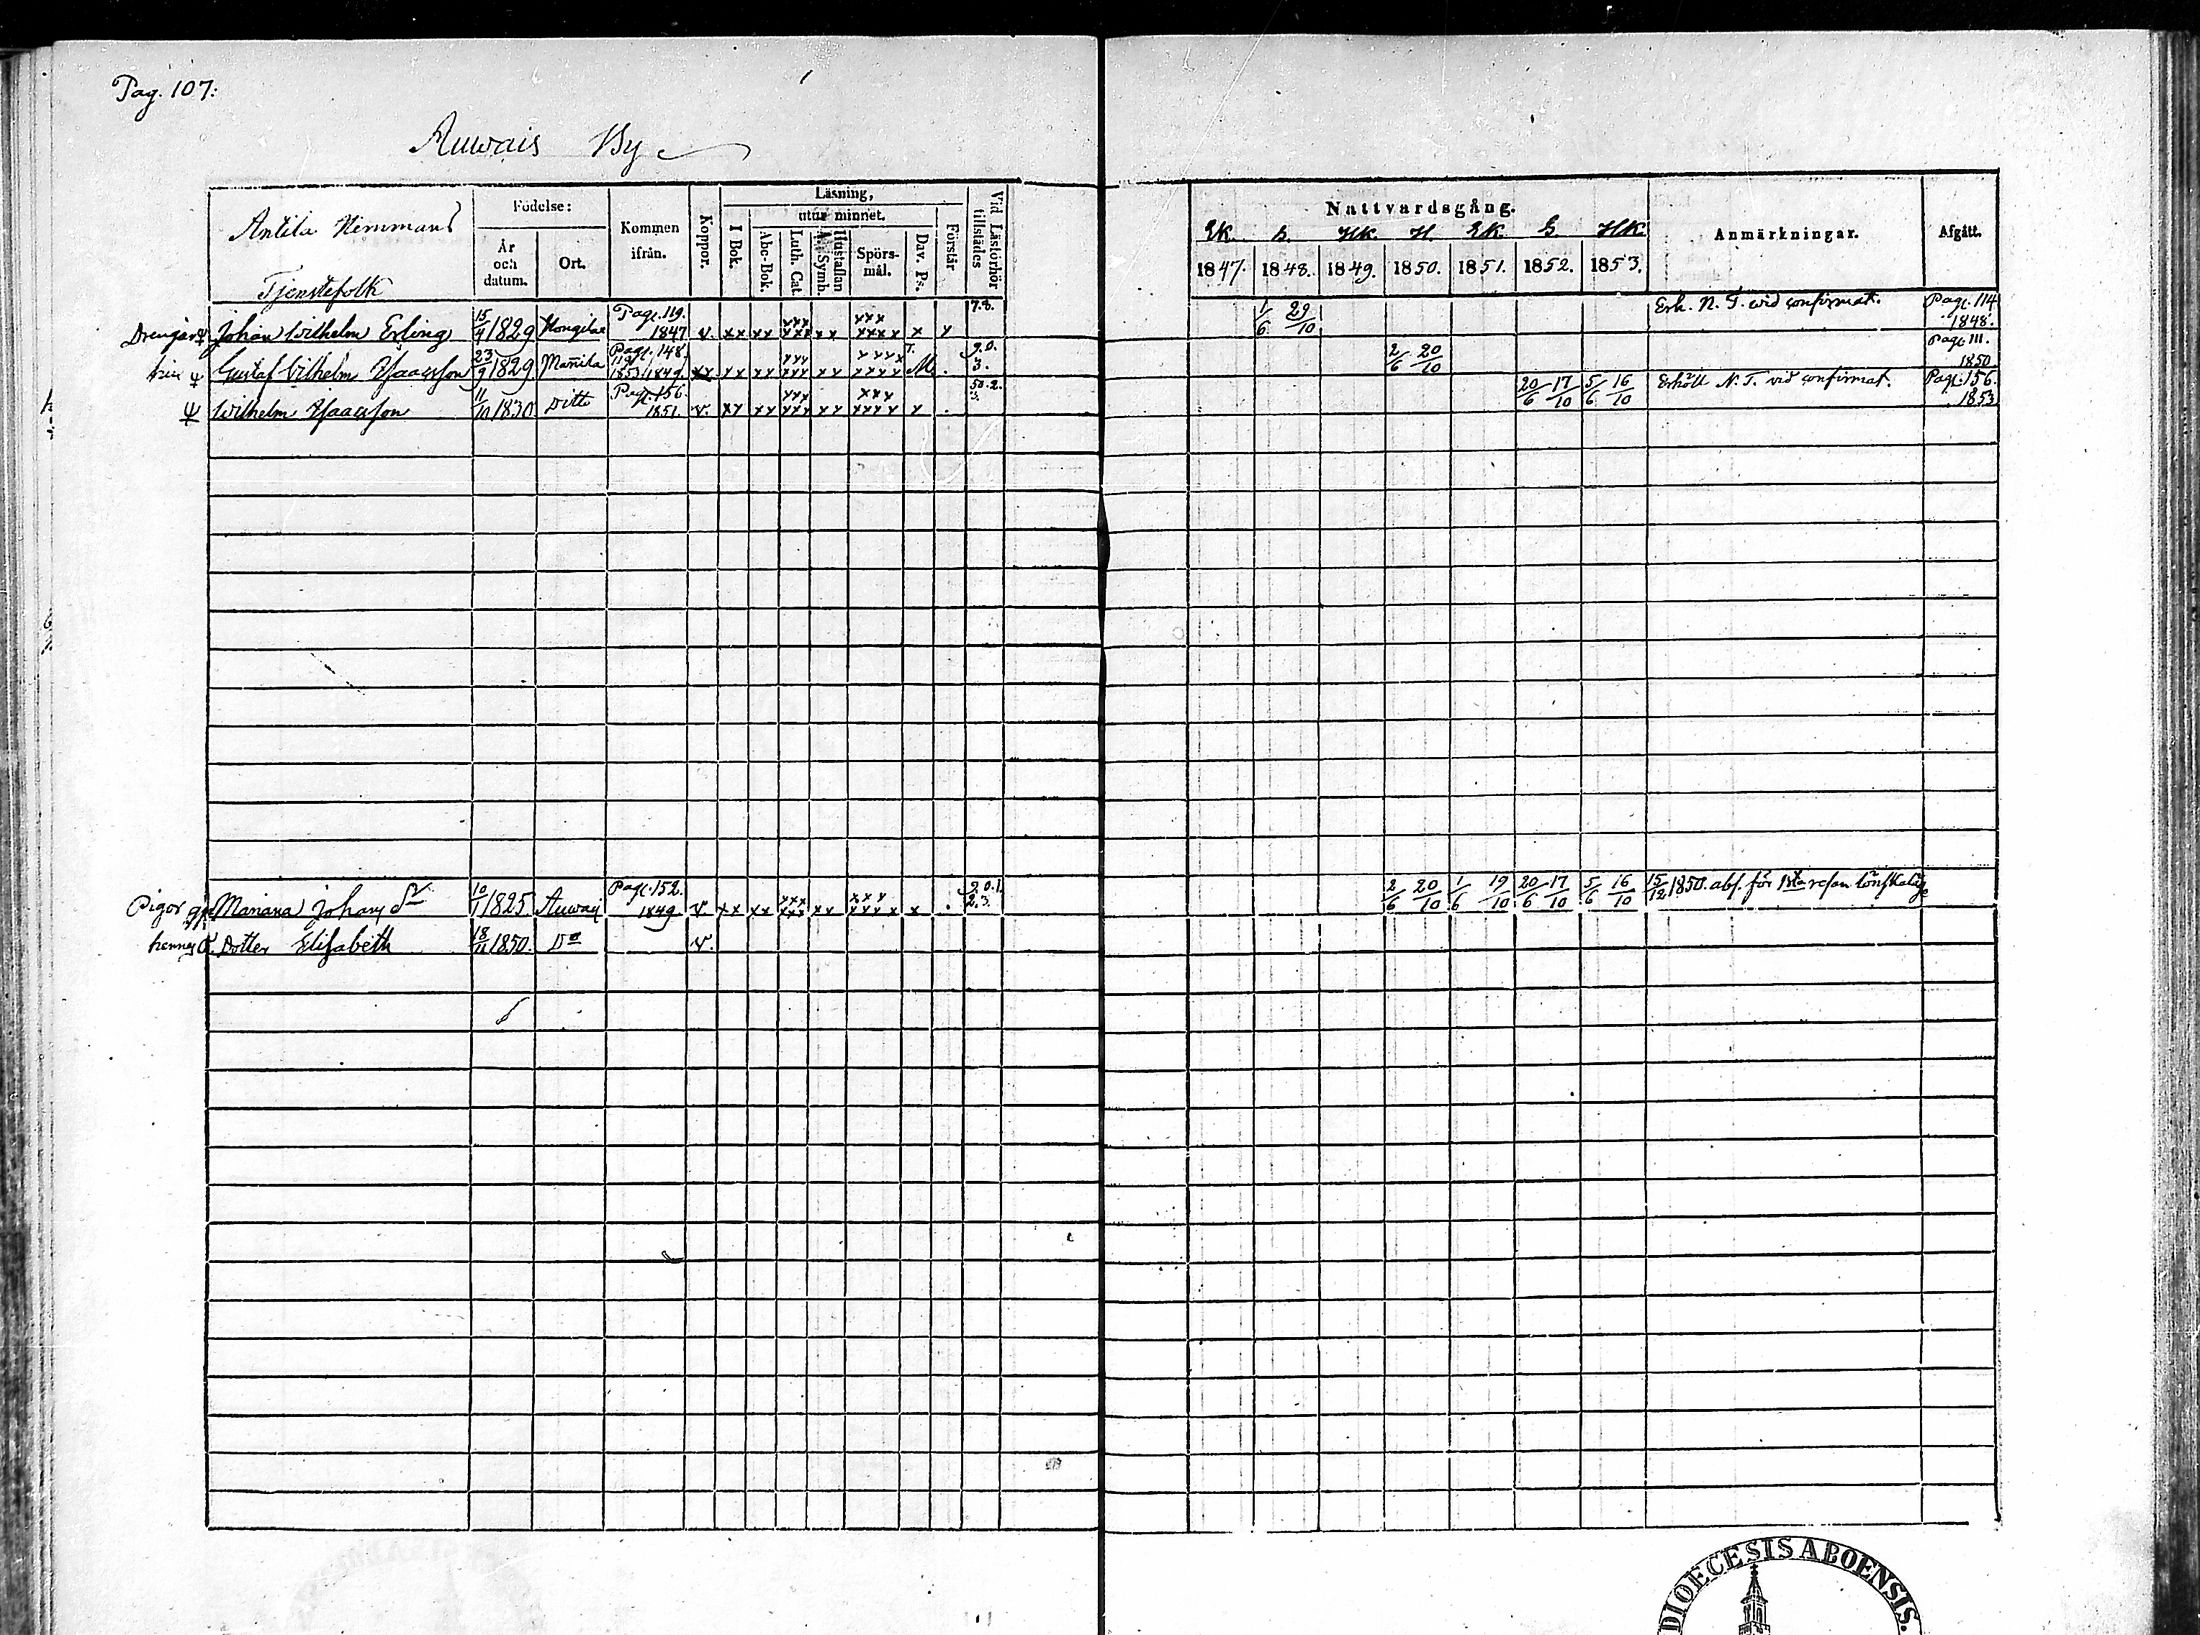 Pag. 107:
Auwais By
Antila Hemmans
Tjenstefolk
Födelse:
År och datum.
Ort.
Kommen ifrån.
Koppor.
Läsning,
I Bok.
utur minnet.
Abc-Bok.
Luth. Cat.
Hustaflan A. Symb.
Spörs-mål.
Dav. Ps.
Förstår
Vid Läsförhör tillstädes
Nattvardsgång.
Ek. B. Hk. H. Ek. B. Hk.
1847. 1848. 1849. 1850. 1851. 1852. 1853.
Anmärkningar.
Afgått.
Drengar Johan Wilhelm Erling 15/4 1829 Hongilax Pag. 119. 1847 v. xx xx xxx xxx xx xxx xxxx x x 7.8. 1/6 29/10 Erh. N. T. wid confirmat. Pag. 114 1848.
Gustaf Wilhelm Isaacsson 23/9 1829 Pag. 148. 1849. xx xx xxx xxx xx xxxx xxxx . 9.0. 3. 2/6 20/10 Pag. 111. 1850
Wilhelm Isaacsson 11/10 1830 Ditto Pag. 156. 1851. v. xx xx xxx xxx xx xxx xxxx x . 50.2. 3. 20/6 17/10 5/6 16/10 Erhöll N. T. vid confirmat. Pag. 156. 1853
Pigor Mariana Johans dr 10/1 1825 Auwais Pag. 152. 1849 v. xx xx xxx xxx xx xxx xxxx x . 9.0.1. 2.3. 2/6 20/10 1/6 19/10 20/6 17/10 5/6 16/10 15/12 1850. abs. för 1sta resan lönskaläge
hennes o. Dotter Elisabeth 18/11 1850. Do v.
DIOECESIS ABOENSIS.